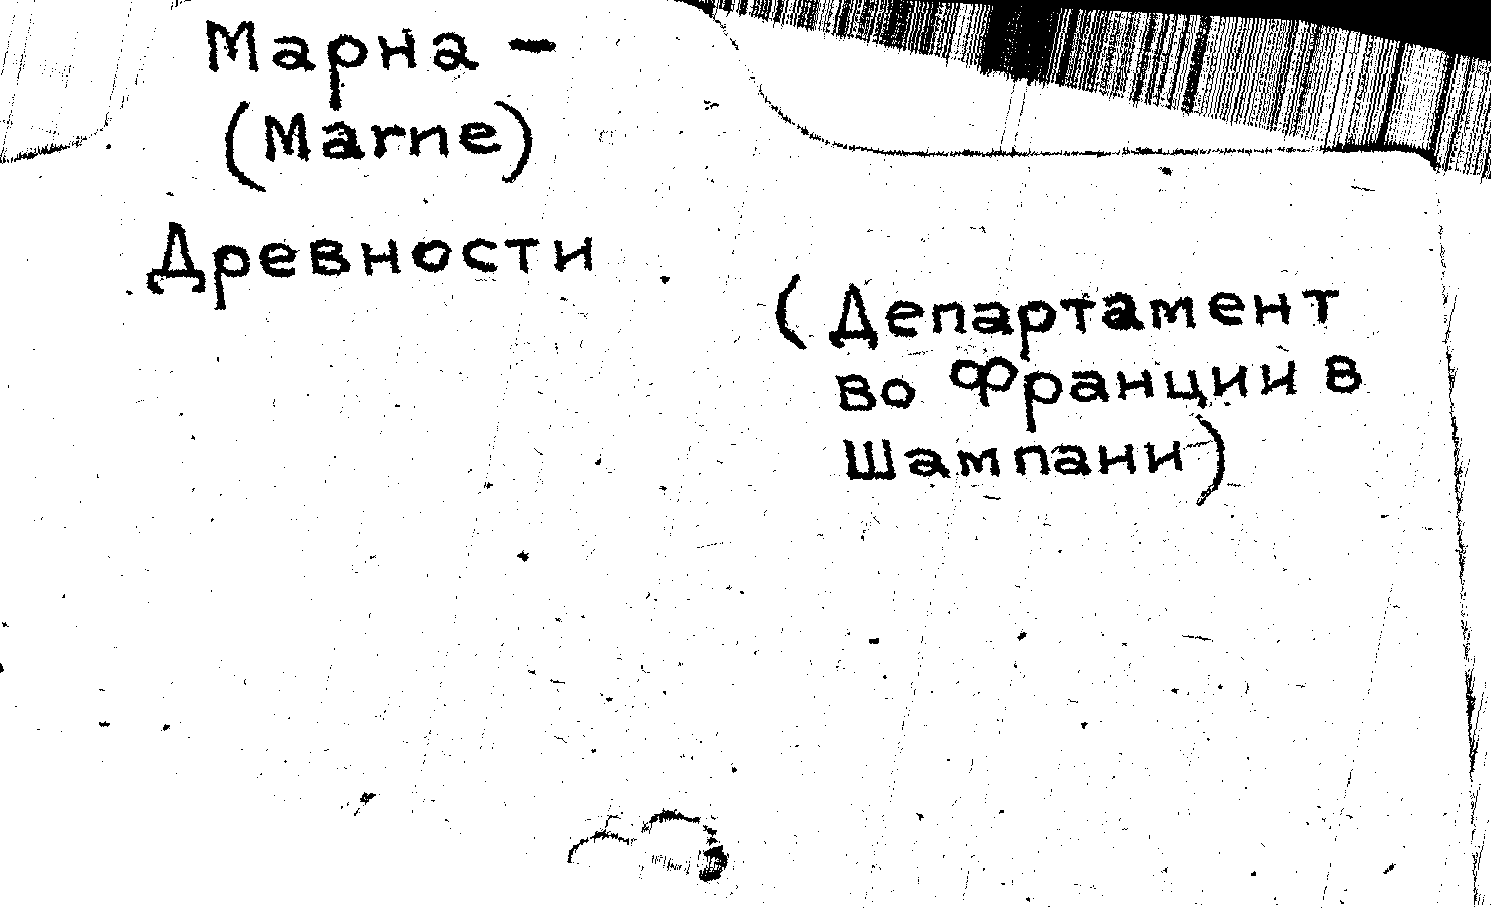 Марна -
(Marne)
Древности
(Департамент
во Франции в
Шампани)